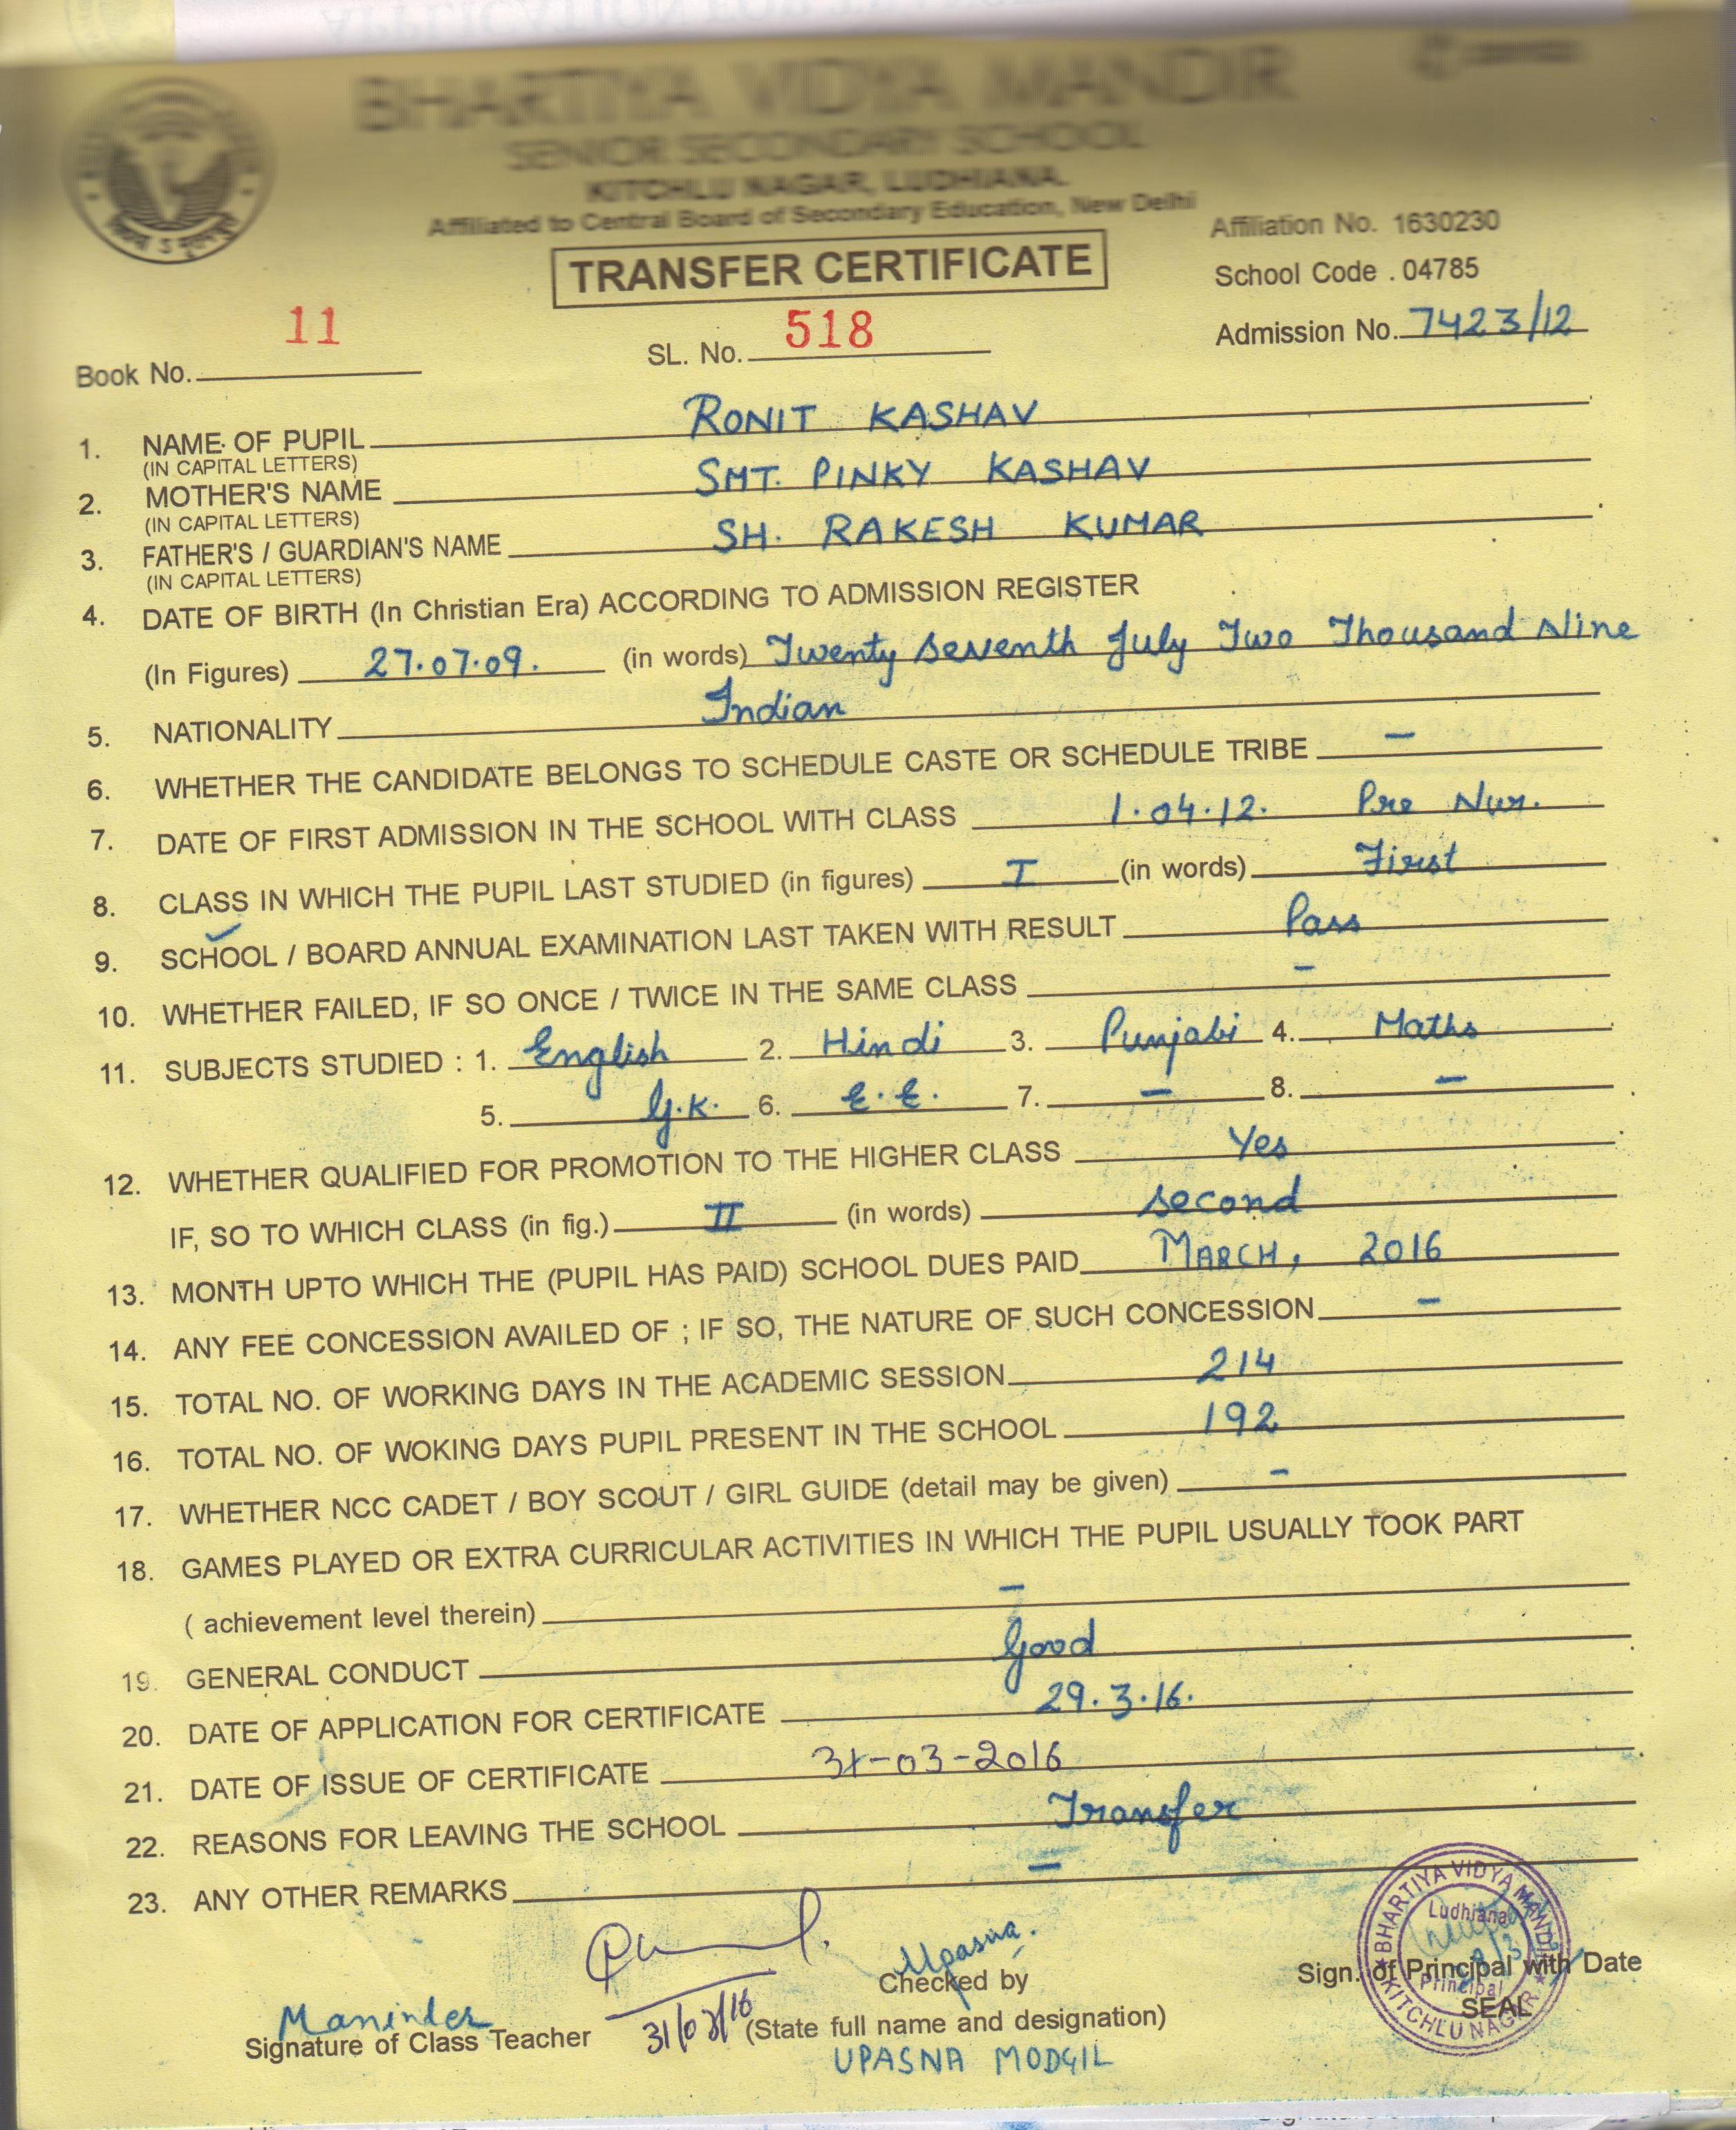 BHARTIYA VIDYA MANDIR
SENIOR SECONDARY SCHOOL
KITCHLU NAGAR, LUDHIANA.
Affiliated to Central Board of Secondary Education, New Delhi
Affiliation No. 1630230
TRANSFER CERTIFICATE
School Code . 04785
Book No. 11 SL. No. 518 Admission No. 7423/12
1. NAME OF PUPIL RONIT KASHAV
(IN CAPITAL LETTERS)
2. MOTHER'S NAME SMT. PINKY KASHAV
(IN CAPITAL LETTERS)
3. FATHER'S / GUARDIAN'S NAME SH. RAKESH KUMAR
(IN CAPITAL LETTERS)
4. DATE OF BIRTH (In Christian Era) ACCORDING TO ADMISSION REGISTER
(In Figures) 27.07.09. (in words) Twenty seventh July Two Thousand Nine
5. NATIONALITY Indian
6. WHETHER THE CANDIDATE BELONGS TO SCHEDULE CASTE OR SCHEDULE TRIBE –
7. DATE OF FIRST ADMISSION IN THE SCHOOL WITH CLASS 1.04.12. Pre Nur.
8. CLASS IN WHICH THE PUPIL LAST STUDIED (in figures) I (in words) First
9. SCHOOL / BOARD ANNUAL EXAMINATION LAST TAKEN WITH RESULT Pass
10. WHETHER FAILED, IF SO ONCE / TWICE IN THE SAME CLASS –
11. SUBJECTS STUDIED : 1. English 2. Hindi 3. Punjabi 4. Maths
5. G.K. 6. E.E. 7. – 8. –
12. WHETHER QUALIFIED FOR PROMOTION TO THE HIGHER CLASS Yes
IF, SO TO WHICH CLASS (in fig.) II (in words) second
13. MONTH UPTO WHICH THE (PUPIL HAS PAID) SCHOOL DUES PAID MARCH, 2016
14. ANY FEE CONCESSION AVAILED OF ; IF SO, THE NATURE OF SUCH CONCESSION –
15. TOTAL NO. OF WORKING DAYS IN THE ACADEMIC SESSION 214
16. TOTAL NO. OF WOKING DAYS PUPIL PRESENT IN THE SCHOOL 192
17. WHETHER NCC CADET / BOY SCOUT / GIRL GUIDE (detail may be given) –
18. GAMES PLAYED OR EXTRA CURRICULAR ACTIVITIES IN WHICH THE PUPIL USUALLY TOOK PART
( achievement level therein) –
19. GENERAL CONDUCT Good
20. DATE OF APPLICATION FOR CERTIFICATE 29.3.16.
21. DATE OF ISSUE OF CERTIFICATE 31-03-2016
22. REASONS FOR LEAVING THE SCHOOL Transfer
23. ANY OTHER REMARKS –
BHARTIYA VIDYA MANDIR
Ludhiana
Principal
KITCHLU NAGAR
Upasna.
Checked by
Sign. of Principal with Date
SEAL
Maninder
Signature of Class Teacher
31/03/16
(State full name and designation)
UPASNA MODGIL